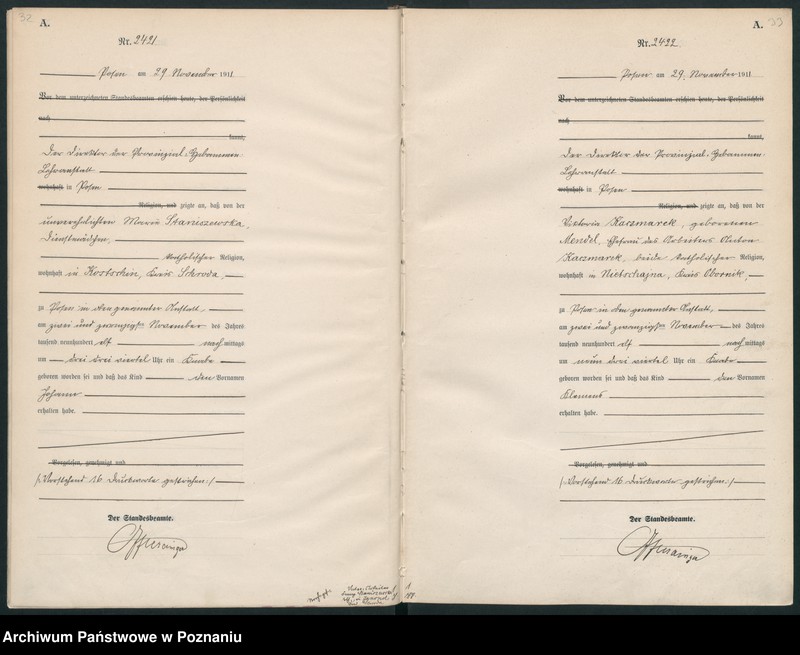 32
A.
Nr. 2421
Posen am 29 November 1911
Vor dem unterzeichneten Standesbeamten erschien heute, der Persönlichkeit
nach
kannt,
Der Direktor der Provinzial-Hebammen
Lehranstalt
wohnhaft in Posen
Religion, und zeigte an, daß von der
unverehelichten Maria Staniszewska,
Dienstmädchen,
katholischer Religion,
wohnhaft in Kostschin, Kreis Schroda,
zu Posen in der genannten Anstalt,
am zwei und zwanzigsten November des Jahres
tausend neunhundert elf nachmittags
um drei drei viertel Uhr ein Knabe
geboren worden sei und daß das Kind den Vornamen
Johann
erhalten habe.
Vorgelesen, genehmigt und
/: Vorstehend 16 Druckworte gestrichen :/
Der Standesbeamte.
33
A.
Nr. 2422
Posen am 29. November 1911
Vor dem unterzeichneten Standesbeamten erschien heute, der Persönlichkeit
nach
kannt,
Der Direktor der Provinzial-Hebammen
Lehranstalt
wohnhaft in Posen
Religion, und zeigte an, daß von der
Victoria Kaczmarek, geborenen
Mendel, Ehefrau des Arbeiters Anton
Kaczmarek, beide katholischer Religion,
wohnhaft in Nietschajna, Kreis Obornik,
zu Posen in der genannten Anstalt,
am zwei und zwanzigsten November des Jahres
tausend neunhundert elf nachmittags
um neun drei viertel Uhr ein Knabe
geboren worden sei und daß das Kind den Vornamen
Klemens
erhalten habe.
Vorgelesen, genehmigt und
/: Vorstehend 16 Druckworte gestrichen :/
Der Standesbeamte.
Archiwum Państwowe w Poznaniu